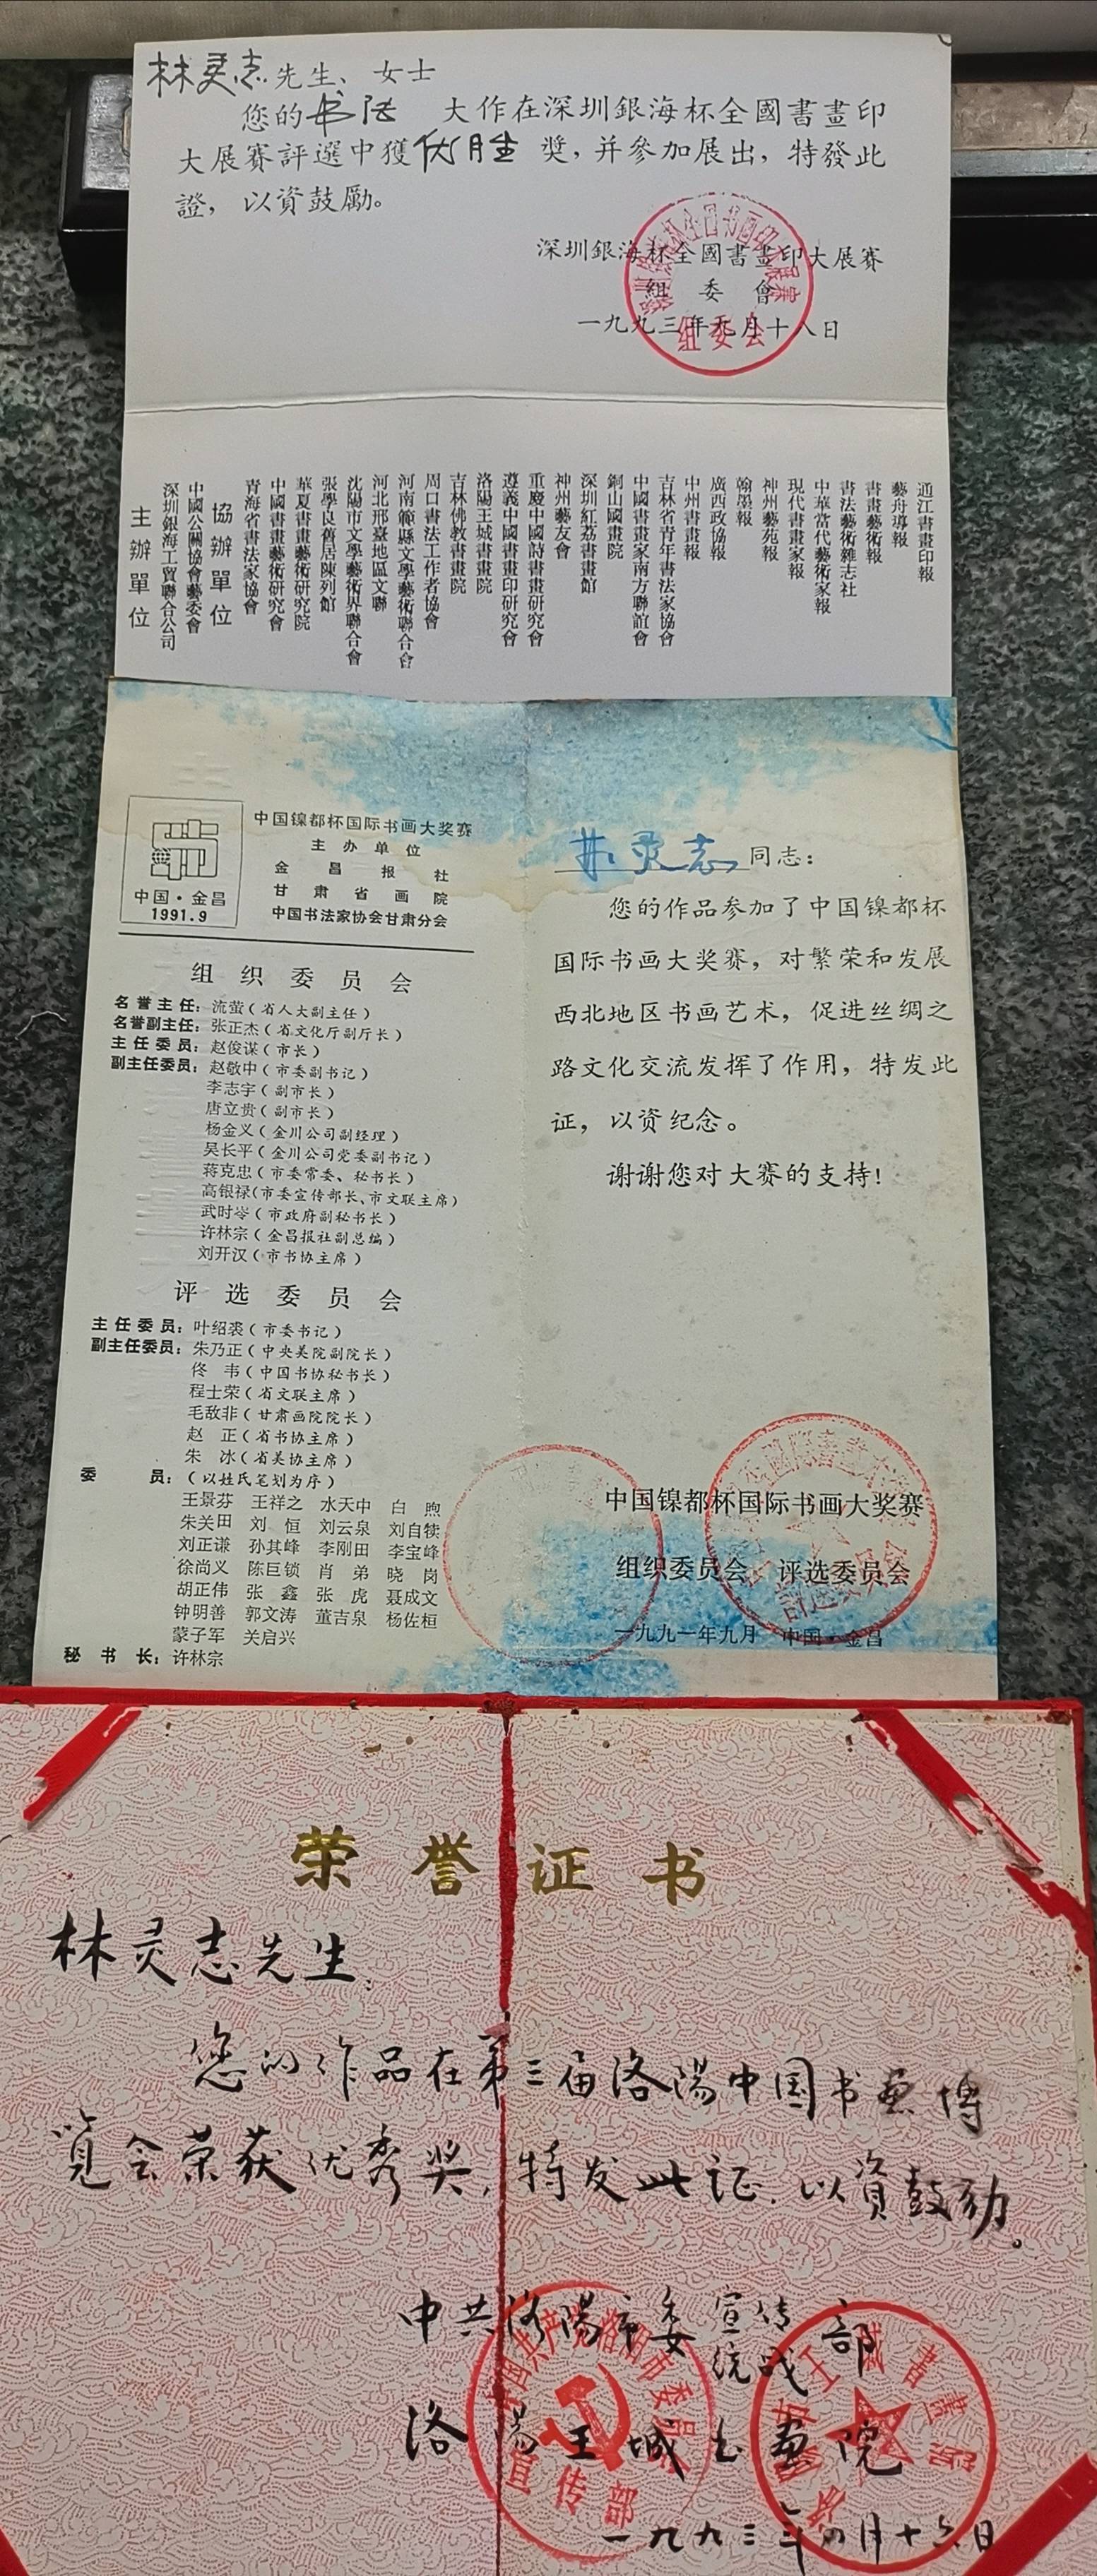 林灵志先生、女士
您的书法 大作在深圳銀海杯全國書畫印
大展賽評選中獲优胜 奬，并參加展出，特發此
證，以資鼓勵。
深圳銀海杯全國書畫印大展賽
組委會
一九九三年九月十八日
组委会
通江書畫印報
藝舟導報
書畫藝術報
書法藝術雜志社
中華當代藝術家報
現代書畫家報
神州藝苑報
翰墨報
廣西政協報
中州書畫報
吉林省青年書法家協會
中國書畫家南方聯誼會
銅山國畫院
深圳紅荔書畫館
神州藝友會
重慶中國詩書畫研究會
遵義中國書畫印研究會
洛陽王城書畫院
吉林佛教書畫院
周口書法工作者協會
河南範縣文學藝術聯合會
河北邢臺地區文聯
沈陽市文學藝術界聯合會
張學良舊居陳列館
華夏書畫藝術研究院
中國書畫藝術研究會
青海省書法家協會
協辦單位
中國公關協會藝委會
深圳銀海工貿聯合公司
主辦單位
中国·金昌
1991.9
中国镍都杯国际书画大奖赛
主办单位
金昌报社
甘肃省画院
中国书法家协会甘肃分会
组织委员会
名誉主任：流萤（省人大副主任）
名誉副主任：张正杰（省文化厅副厅长）
主任委员：赵俊谋（市长）
副主任委员：赵敬中（市委副书记）
李志宇（副市长）
唐立贵（副市长）
杨金义（金川公司副经理）
吴长平（金川公司党委副书记）
蒋克忠（市委常委、秘书长）
高银禄（市委宣传部长、市文联主席）
武时岺（市政府副秘书长）
许林宗（金昌报社副总编）
刘开汉（市书协主席）
评选委员会
主任委员：叶绍裘（市委书记）
副主任委员：朱乃正（中央美院副院长）
佟 韦（中国书协秘书长）
程士荣（省文联主席）
毛敌非（甘肃画院院长）
赵 正（省书协主席）
朱 冰（省美协主席）
委 员：（以姓氏笔划为序）
王景芬 王祥之 水天中 白 煦
朱关田 刘 恒 刘云泉 刘自犊
刘正谦 孙其峰 李刚田 李宝峰
徐尚义 陈巨锁 肖 弟 晓 岗
胡正伟 张 鑫 张 虎 聂成文
钟明善 郭文涛 董吉泉 杨佐桓
蒙子军 关启兴
秘书长：许林宗
林灵志同志：
您的作品参加了中国镍都杯
国际书画大奖赛，对繁荣和发展
西北地区书画艺术，促进丝绸之
路文化交流发挥了作用，特发此
证，以资纪念。
谢谢您对大赛的支持！
中国镍都杯国际书画大奖赛
组织委员会 评选委员会
一九九一年九月 中国·金昌
荣誉证书
林灵志先生：
您的作品在第三届洛陽中国书画博
览会荣获优秀奖，特发此证，以資鼓励。
中共洛陽市委宣传部
统战
洛陽王城书画院
一九九三年四月十六日
中国共产党洛阳市委员会
宣传部
洛陽王城書畫院